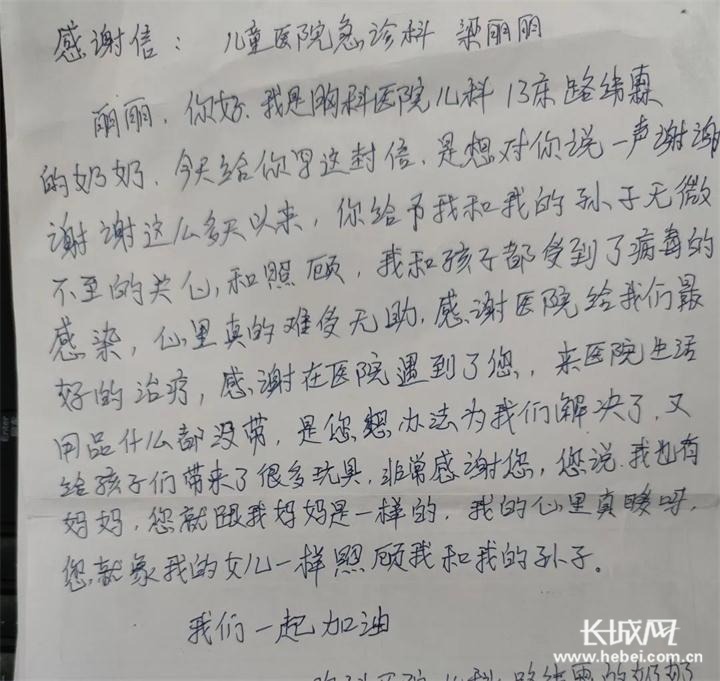 感谢信： 儿童医院急诊科 梁丽丽
丽丽，你好。我是胸科医院儿科13床路纬霖
的奶奶，今天给你写这封信，是想对你说一声谢谢
谢谢这么多天以来，你给予我和我的孙子无微
不至的关心，和照顾，我和孩子都受到了病毒的
感染，心里真的难受无助，感谢医院给我们最
好的治疗，感谢在医院遇到了您，来医院生活
用品什么都没带，是您想办法为我们解决了，又
给孩子们带来了很多玩具，非常感谢您，您说，我也有
妈妈，您就跟我妈妈是一样的，我的心里真暖呀，
您就象我的女儿一样照顾我和我的孙子。
我们一起加油
长城网
www.hebei.com.cn